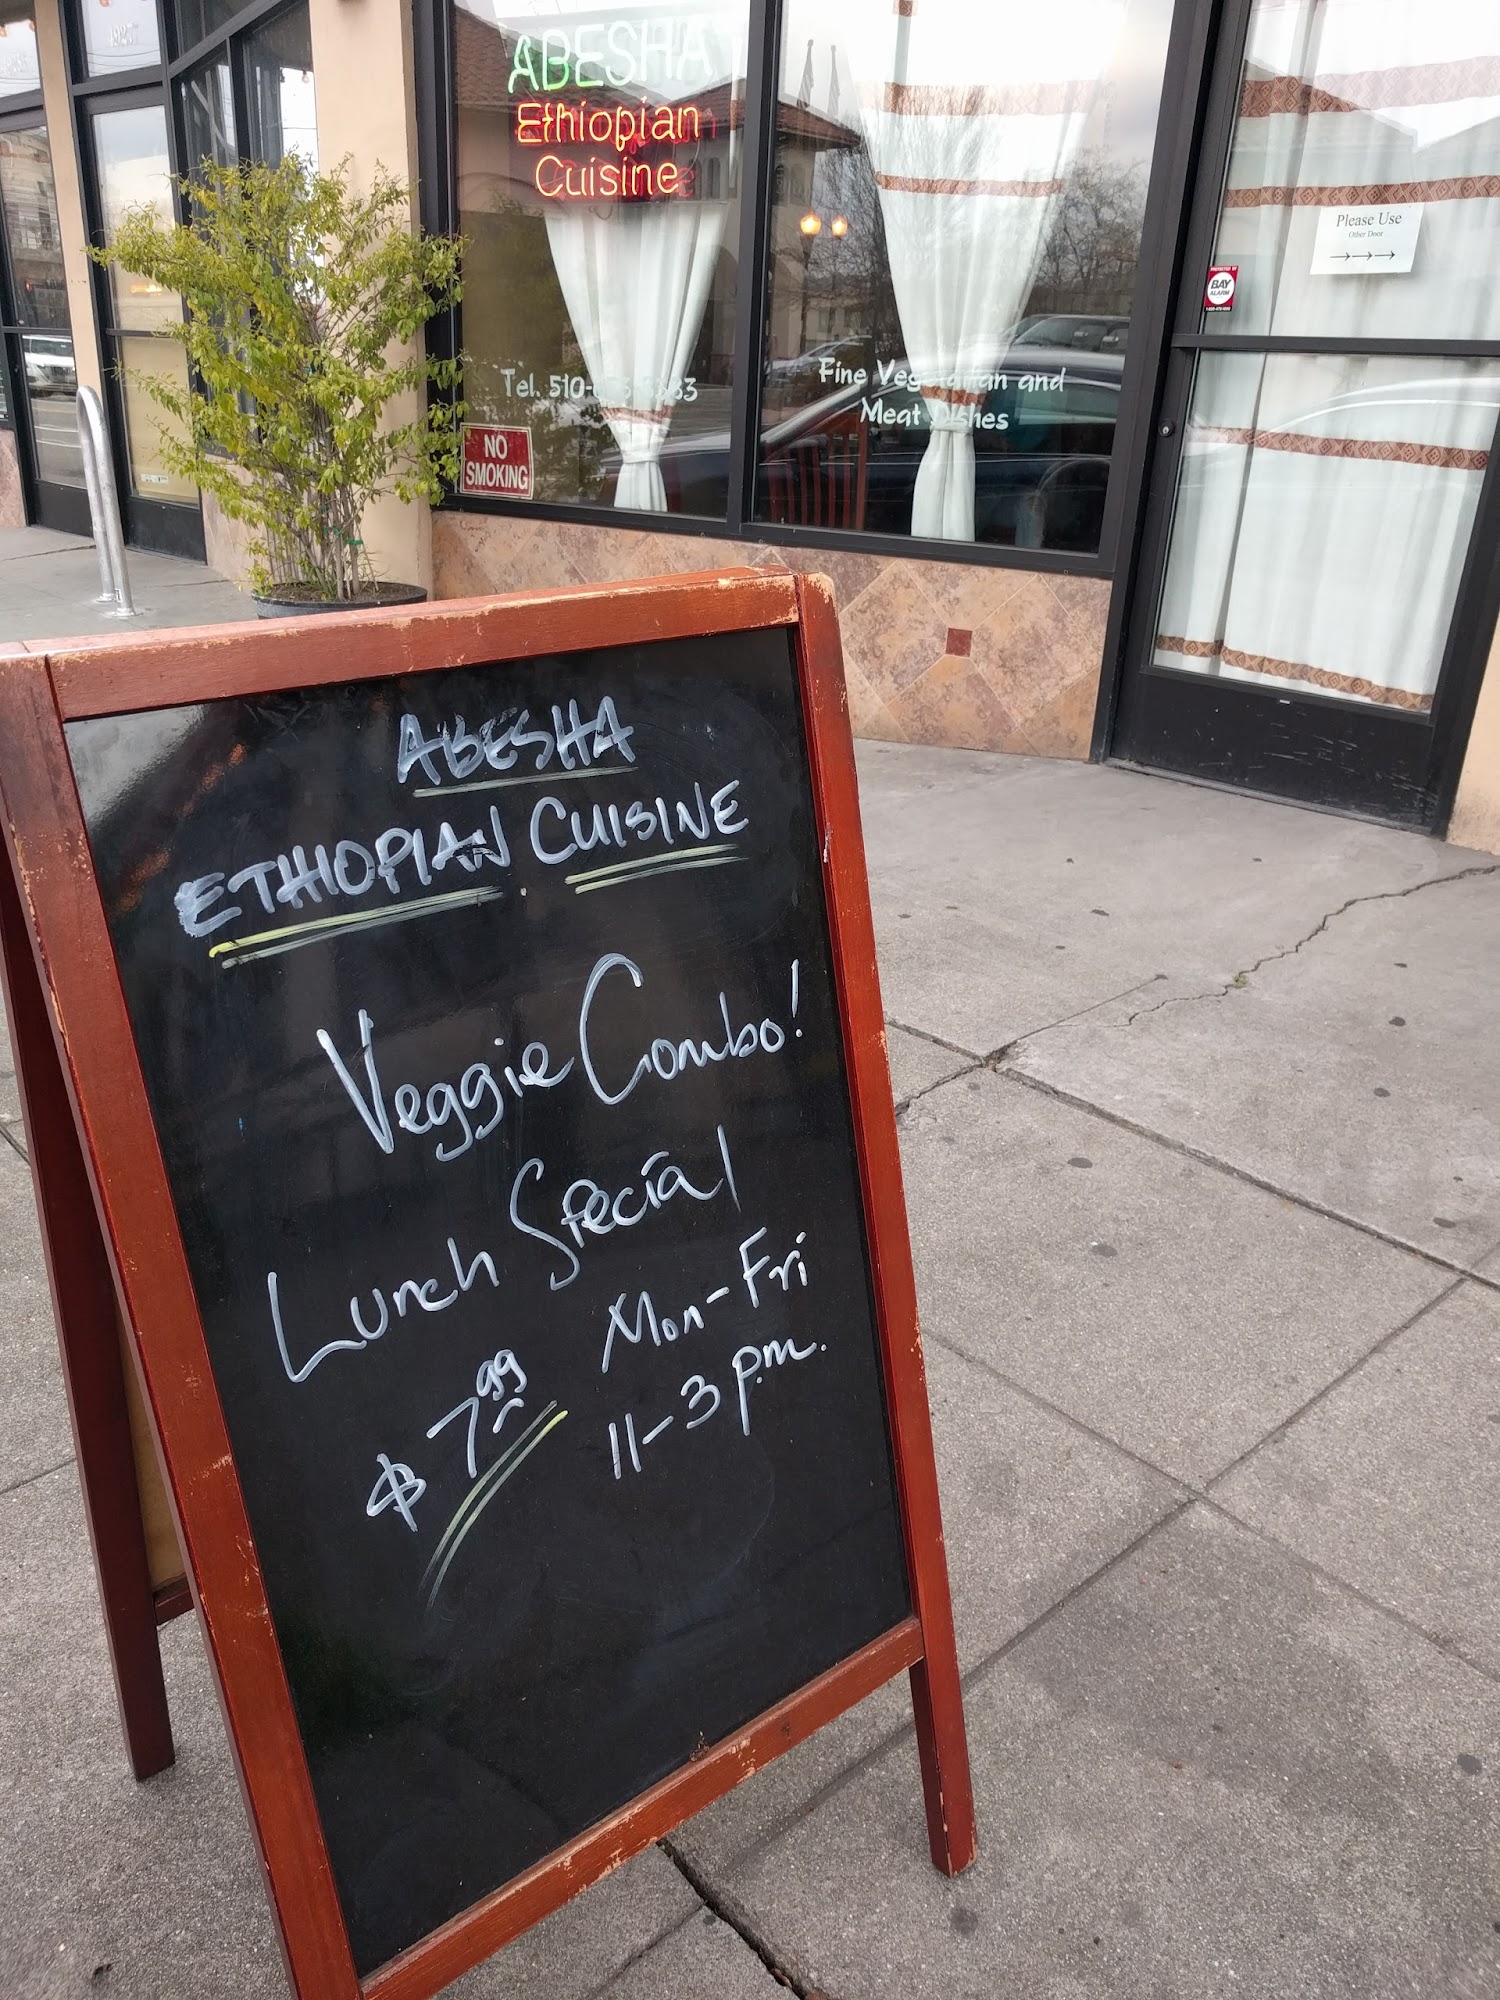 ABESHA
Ethiopian
Cuisine
Please Use
Other Door
PROTECTED BY
BAY
ALARM
Tel. 510-
Fine Vegetarian and
Meat Dishes
NO
SMOKING
ABESHA
ETHIOPIAN CUISINE
Veggie Combo!
Lunch Special
$ 7.99
Mon-Fri
11-3 p.m.